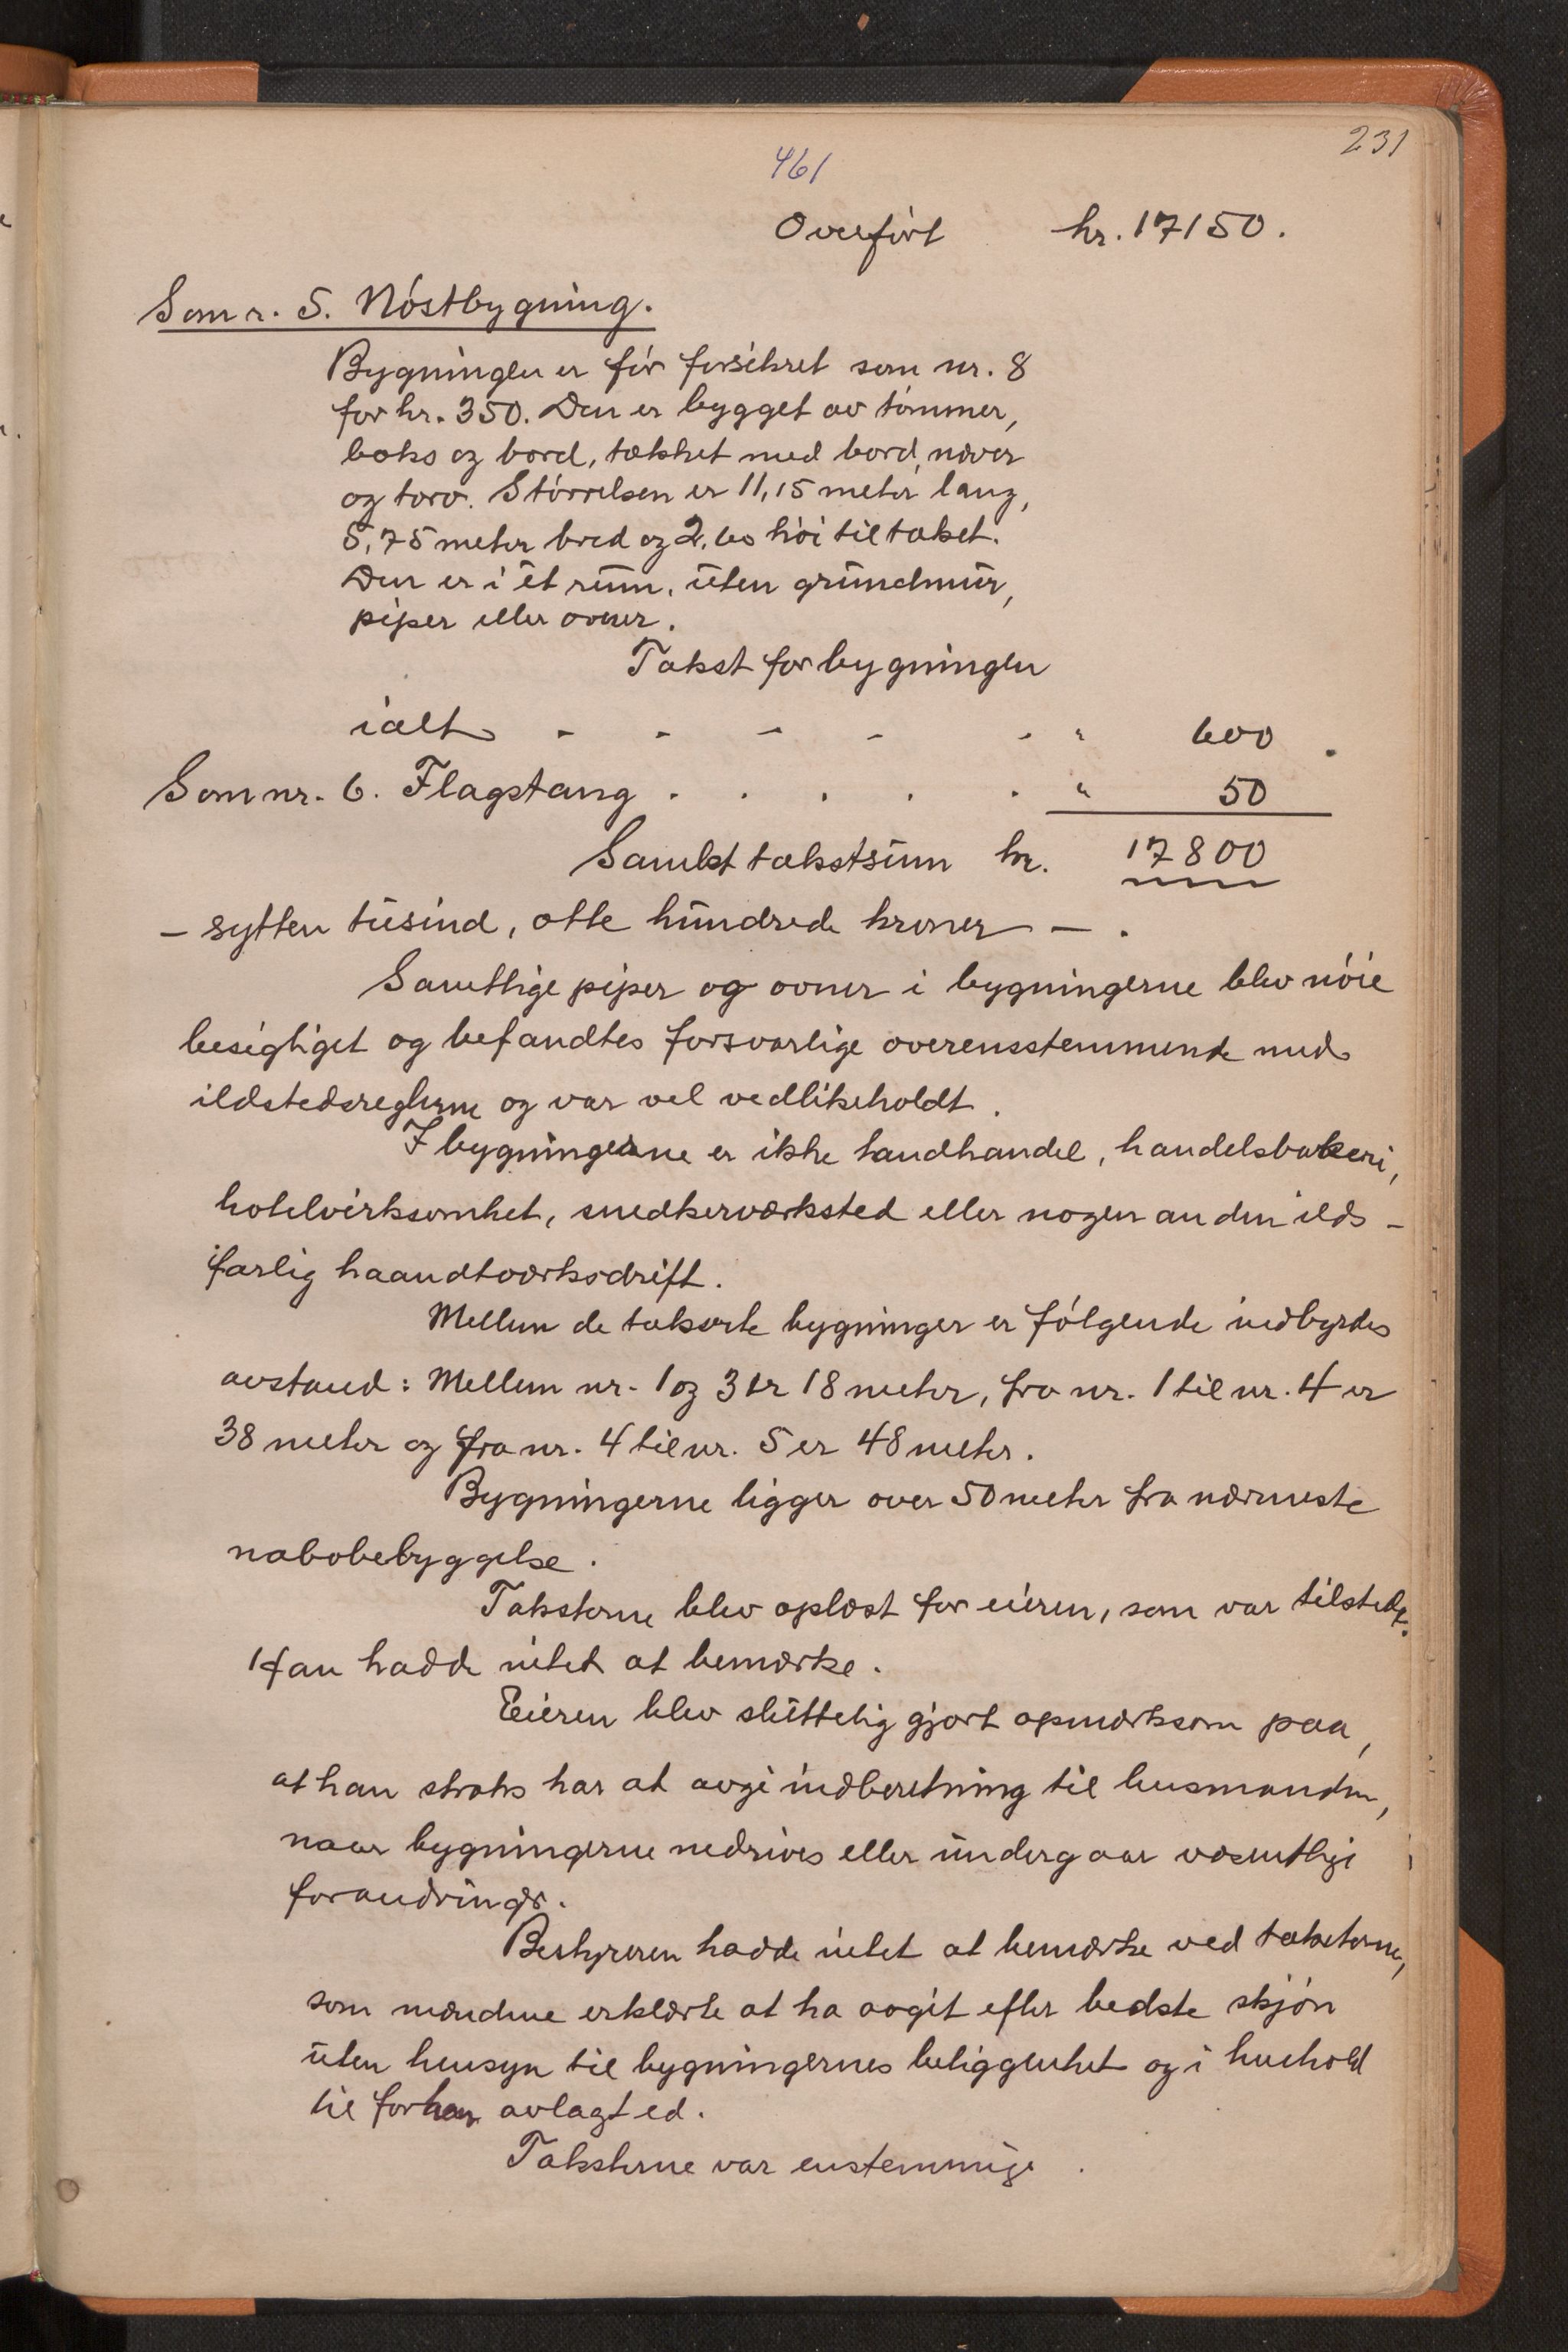 231
461
Overført kr. 17150.
Som nr. 5. Nøstbygning.
Bygningen er før forsikret som nr. 8
for kr. 350. Den er bygget av tømmer,
boks og bord, tækket med bord, næver
og torv. Størrelsen er 11,15 meter lang,
5,75 meter bred og 2,60 høi til taket.
Den er i ét rum, uten grundmur,
piper eller ovner.
Takst for bygningen
ialt - - - - - " 600.
Som nr. 6. Flagstang . . . . . " 50
Samlet takstsum kr. 17800
- sytten tusind, otte hundrede kroner - .
Samtlige piper og ovner i bygningerne blev nøie
besigtiget og befandtes forsvarlige overensstemmende med
ildstedsreglerne og var vel vedlikeholdt.
I bygningerne er ikke landhandel, handelsbakeri,
hotelvirksomhet, snedkerværksted eller nogen anden ilds-
farlig haandtværksdrift.
Mellem de takserte bygninger er følgende indbyrdes
avstand: Mellem nr. 1 og 3 er 18 meter, fra nr. 1 til nr. 4 er
38 meter og fra nr. 4 til nr. 5 er 48 meter.
Bygningerne ligger over 50 meter fra nærmeste
nabobebyggelse.
Taksterne blev oplæst for eieren, som var tilstede.
Han hadde intet at bemærke.
Eieren blev sluttelig gjort opmerksom paa,
at han straks har at avgi indberetning til lensmanden,
naar bygningerne nedrives eller undergaar væsentlige
forandringer.
Bestyreren hadde intet at bemærke ved taksterne,
som mændene erklærte at ha avgit efter bedste skjøn
uten hensyn til bygningernes beliggenhet og i henhold
til forhen avlagt ed.
Taksterne var enstemmige.